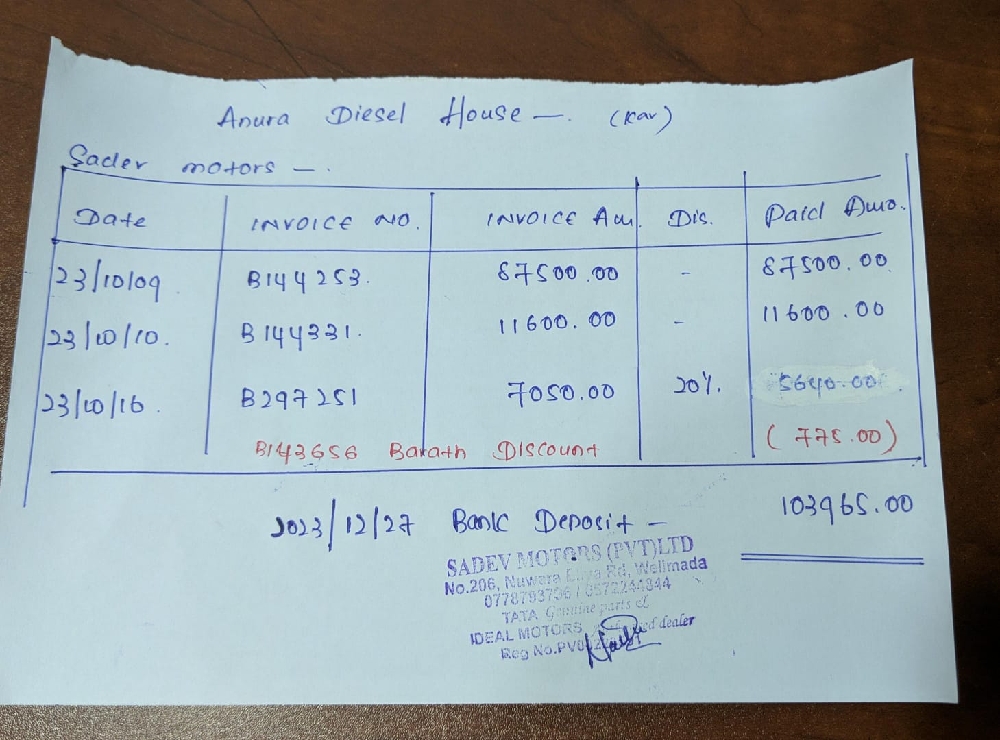 Anura Diesel House —. (Kar)
Sadev motors —.
Date INVOICE NO. INVOICE Am. Dis. Paid Amo.
23/10/09 B144253. 87500.00 - 87500.00
23/10/10. B144331. 11600.00 - 11600.00
23/10/16. B297251 7050.00 20%. 5640.00
B143656 Barath Discount (775.00)
2023/12/27 Bank Deposit — 103965.00
SADEV MOTORS (PVT)LTD
No.206, Nuwara Eliya Rd, Welimada
TATA Genuine parts &
IDEAL MOTORS dealer
Reg No.PV